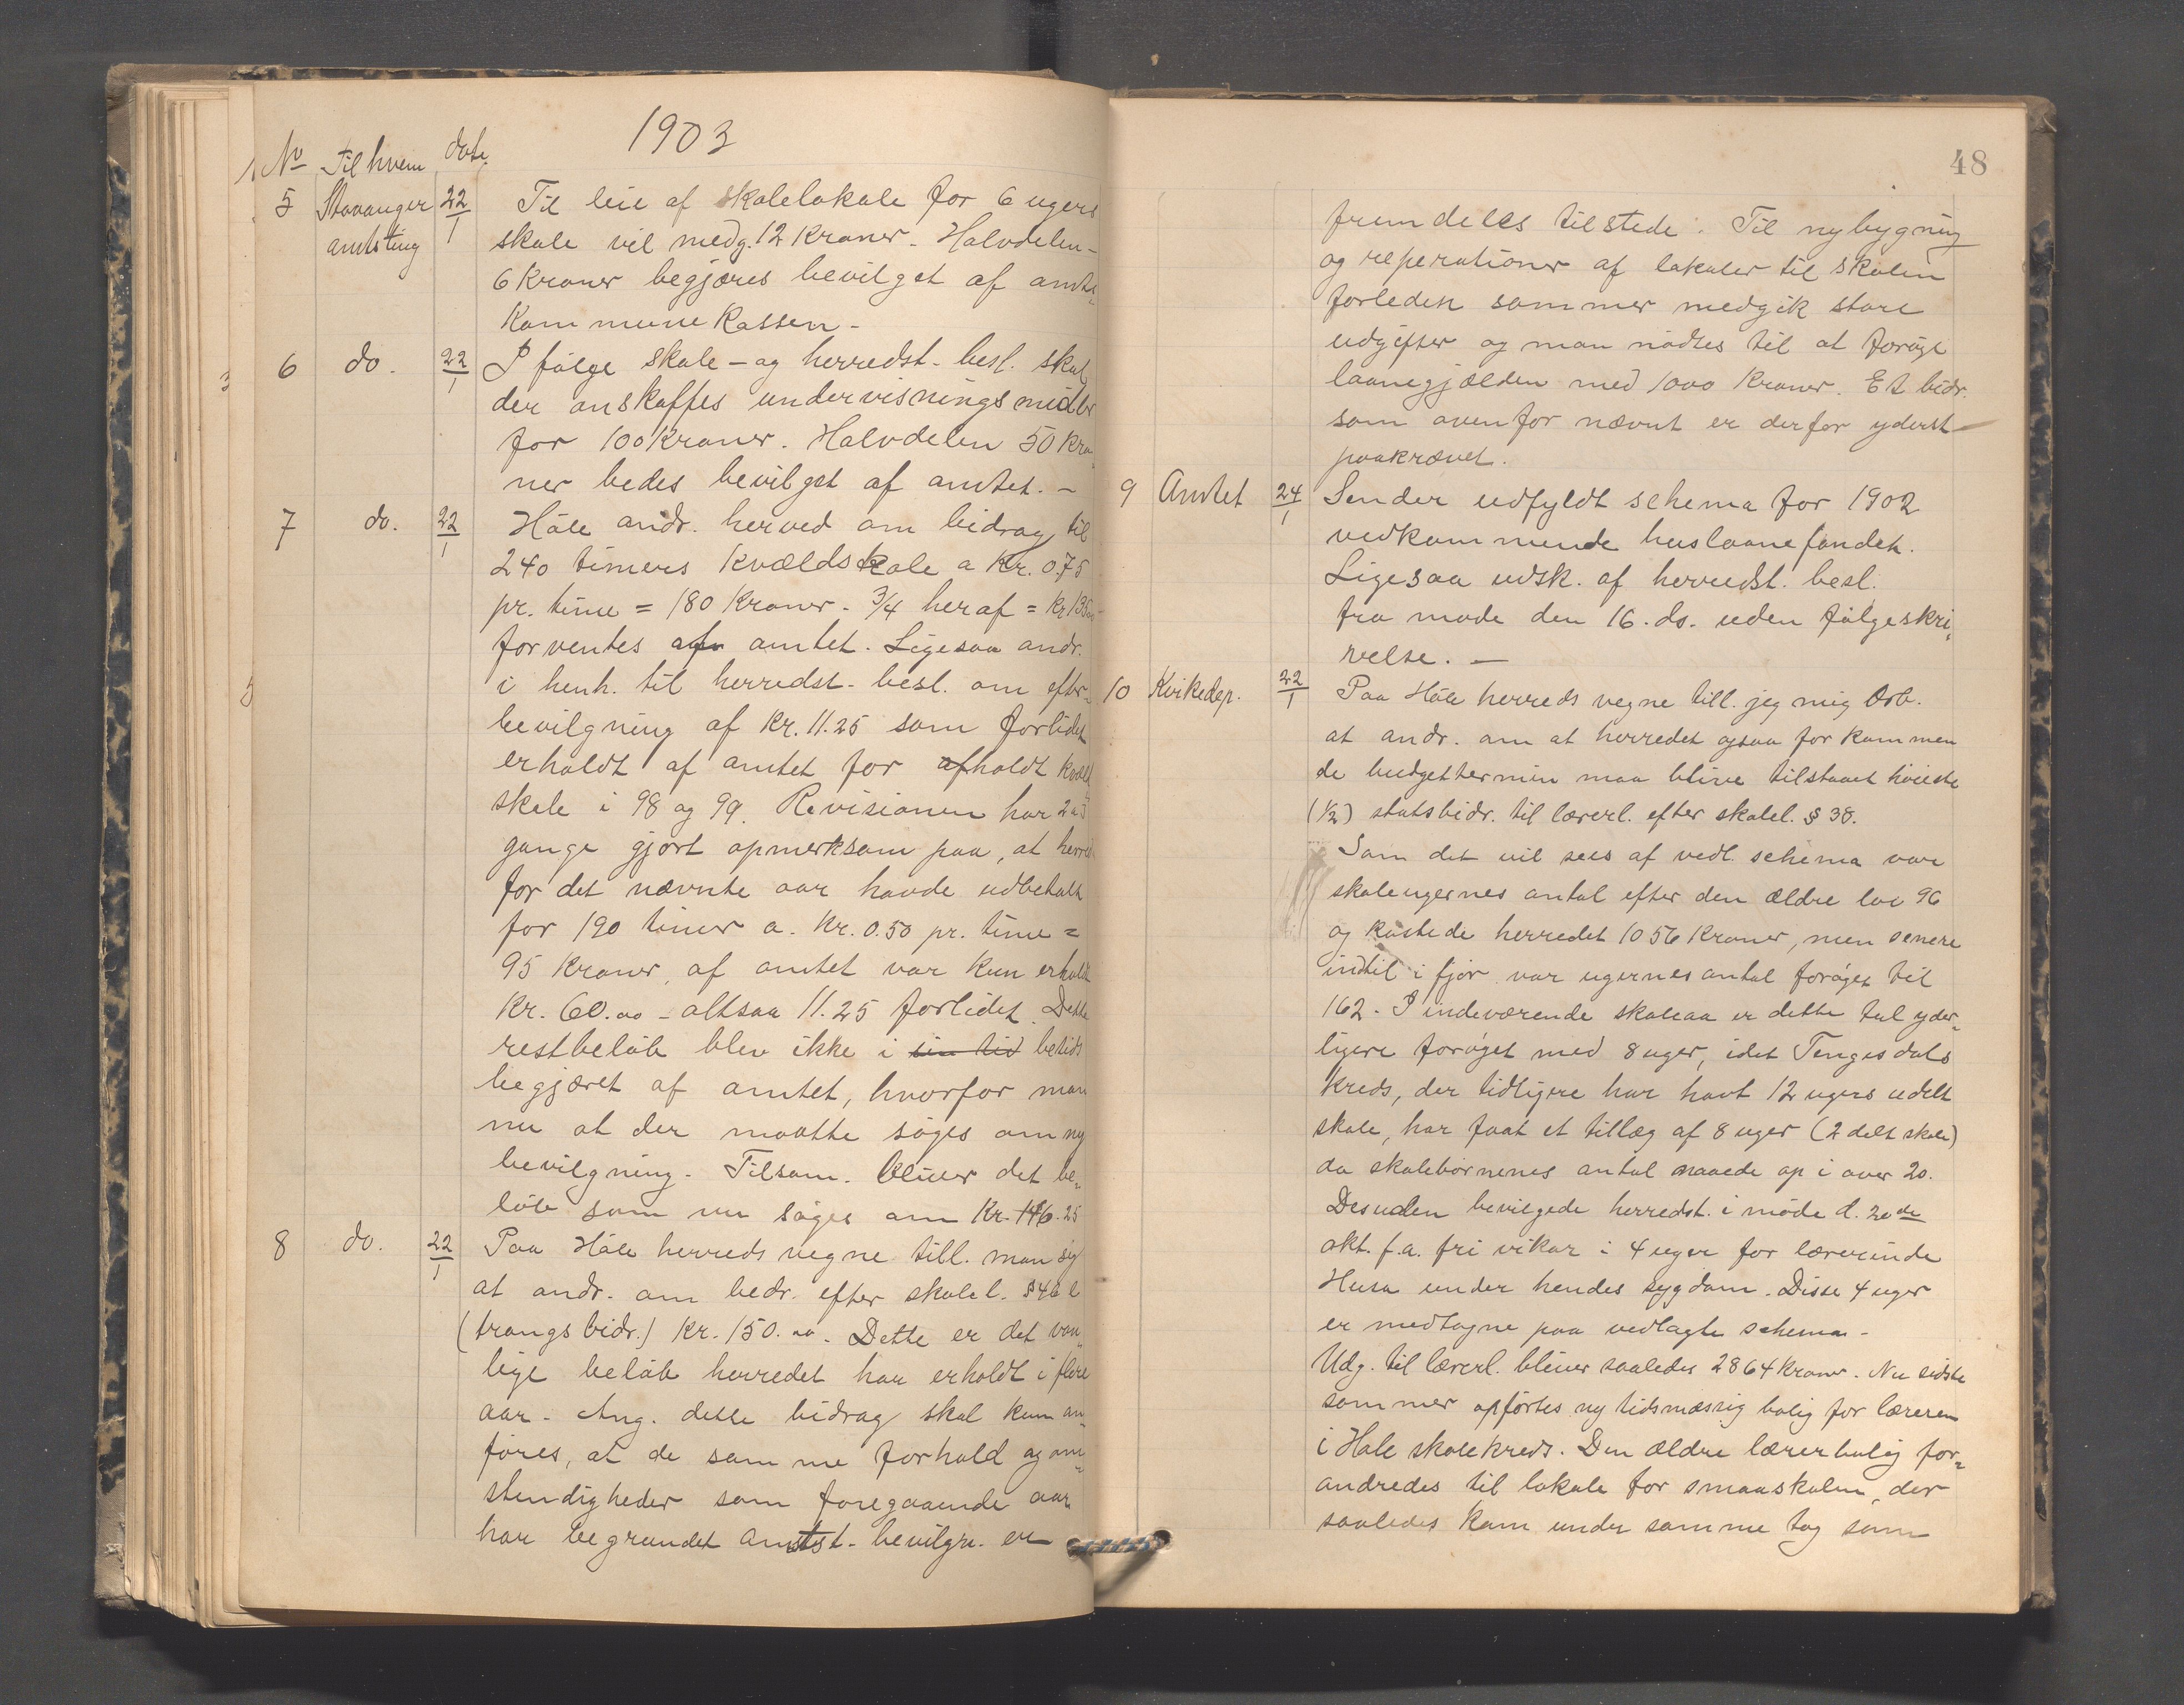 1903
No Til hvem date
5 Stavanger amtsting 22/1 Til leie af skolelokale for 6 ugers
skole vil medg. 12 kroner. Halvdelen -
6 kroner begjæres bevilget af amts-
kommunekassen -
6 do. 22/1 I følge skole- og herredst. besl. skal
der anskaffes undervisningsmidler
for 100 kroner. Halvdelen 50 kro-
ner bedes bevilget af amtet. -
7 do. 22/1 Høle andr. herved om bidrag til
240 timers kvældskole a kr. 0.75
pr. time = 180 kroner. 3/4 heraf = kr 135.00
forventes af amtet. Ligesaa andr.
i henh. til herredst. besl. om efter-
bevilgning af kr. 11.25 som forlidet
erholdt af amtet for afholdt kveld
skole i 98 og 99. Revisionen har 2 a 3
gange gjort opmerksom paa, at herred
for det nævnte aar havde udbetalt
for 190 timer a. kr. 0.50 pr. time =
95 kroner, af amtet var kun erholdt
kr. 60.00 - altsaa 11.25 forlidet. Dette
restbeløb blev ikke i sin tid betids
begjæret af amtet, hvorfor man
nu at der maatte søges om ny
bevilgning. Tilsam. bliver det be-
løb som nu søges om kr. 146.25
8 do. 22/1 Paa Høle herreds vegne till. man sig
at andr. om bedr. efter skolel. §
(trangsbidr.) kr. 150.00. Dette er det van-
lige beløb herredet har erholdt i flere
aar. Ang. dette bidrag skal kun an-
føres, at de samme forhold og om-
stendigheder som foregaaende aar
har begrundet amtst. bevilgn. er
48
fremdeles tilstede. Til nybygning
og reperationer af lokaler til skolen
forleden sommer medgik store
udgifter og man nødtes til at forøge
laanegjælden med 1000 kroner. Et bidr.
som ovenfor nævnt er derfor yderst
paakrævet.
9 Amtet 24/1 Sender udfyldt schema for 1902
vedkommende huslaanefondet.
Ligesaa udsk. af herredst. besl.
fra møde den 16. ds. uden følgeskri-
velse. -
10 Kirkedep. 22/1 Paa Høle herreds vegne till. jeg mig ærb.
at andr. om at herredet ogsaa for kommen
de budgettermin maa blive tilstaaet høieste
(1/2) statsbidr. til lærerl. efter skolel. § 38.
Som det vil sees af vedl. schema var
skoleugernes antal efter den ældre lov 96
og kostede herredet 1056 kroner, men senere
indtil i fjor var ugernes antal forøget til
162. I indeværende skoleaar er dette tal yder-
ligere forøget med 8 uger, idet Tengesdals
kreds, der tidligere har havt 12 ugers udelt
skole, har faat et tillæg af 8 uger (2 delt skole)
da skolebørnenes antal naaede op i over 20.
Desuden bevilgede herredst. i møde d. 20de
okt. f.a. fri vikar i 4 uger for lærerinde
Husa under hendes sygdom. Disse 4 uger
er medtagne paa vedlagte schema -
Udg. til lærerl. bliver saaledes 2864 kroner. Nu sidste
sommer opførtes ny tidsmæssig bolig for læreren
i Høle skolekreds. Den ældre lærerbolig for-
andredes til lokale for smaaskolen, der
saaledes kom under samme tag som